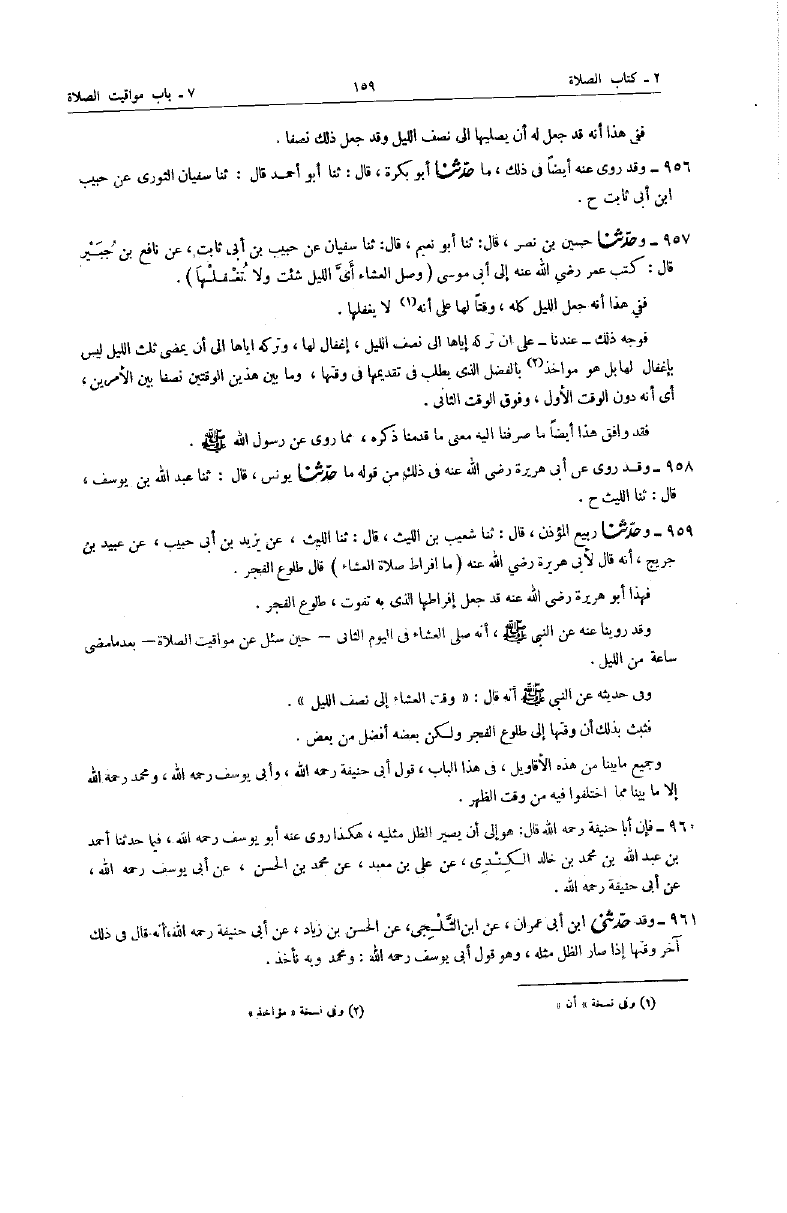 ٢ ـ كتاب الصلاة ١٥٩ ٧ ـ باب مواقيت الصلاة
ففى هذا أنه قد جعل له أن يصليها الى نصف الليل وقد جعل ذلك نصفا .
٩٥٦ ـ وقد روى عنه أيضاً فى ذلك ، ما حدّثنا أبو بكرة ، قال : ثنا أبو أحمد قال : ثنا سفيان الثورى عن حبيب
ابن أبى ثابت ح .
٩٥٧ ـ وحدّثنا حسين بن نصر ، قال: ثنا أبو نعيم ، قال: ثنا سفيان عن حبيب بن أبى ثابت ، عن نافع بن جُبَيْر
قال : كتب عمر رضي الله عنه إلى أبى موسى ( وصل العشاء أىَّ الليل شئت ولا تُغْفِلْهَا ) .
ففي هذا أنه جعل الليل كله ، وقتاً لها على أنه(١) لا يغفلها .
فوجه ذلك ـ عندنا ـ على ان تركه إياها الى نصف الليل ، إغفال لها ، وتركه اياها الى أن يمضى ثلث الليل ليس
بإغفال لها بل هو مواخذ(٢) بالفضل الذى يطلب فى تقديمها فى وقتها ، وما بين هذين الوقتين نصفا بين الأمرين ،
أى أنه دون الوقت الأول ، وفوق الوقت الثانى .
فقد وافق هذا أيضاً ما صرفنا اليه معنى ما قدمنا ذكره ، مما روى عن رسول الله ﷺ .
٩٥٨ ـ وقد روى عن أبى هريرة رضي الله عنه فى ذلك من قوله ما حدّثنا يونس ، قال : ثنا عبد الله بن يوسف ،
قال : ثنا الليث ح .
٩٥٩ ـ وحدّثنا ربيع المؤذن ، قال : ثنا شعيب بن الليث ، قال : ثنا الليث ، عن يزيد بن أبى حبيب ، عن عبيد بن
جريج ، أنه قال لأبى هريرة رضي الله عنه ( ما افراط صلاة العشاء ) قال طلوع الفجر .
فهذا أبو هريرة رضي الله عنه قد جعل إفراطها الذى به تفوت ، طلوع الفجر .
وقد روينا عنه عن النبي ﷺ ، أنه صلى العشاء فى اليوم الثانى — حين سئل عن مواقيت الصلاة — بعدمامضى
ساعة من الليل .
وفى حديثه عن النبي ﷺ أنه قال : « وقت العشاء إلى نصف الليل » .
فثبت بذلك أن وقتها إلى طلوع الفجر ولكن بعضه أفضل من بعض .
وجميع مابينا من هذه الأقاويل ، فى هذا الباب ، قول أبى حنيفة رحمه الله ، وأبى يوسف رحمه الله ، ومحمد رحمة الله
إلا ما بينا مما اختلفوا فيه من وقت الظهر .
٩٦٠ ـ فإن أبا حنيفة رحمه الله قال: هو إلى أن يصير الظل مثليه ، هكذا روى عنه أبو يوسف رحمه الله ، فيما حدثنا أحمد
بن عبد الله بن محمد بن خالد الكِنْدِى ، عن على بن معبد ، عن محمد بن الحسن ، عن أبى يوسف رحمه الله ،
عن أبى حنيفة رحمه الله .
٩٦١ ـ وقد حدّثنى ابن أبى عمران ، عن ابن الثَّلْجِى، عن الحسن بن زياد ، عن أبى حنيفة رحمه الله،أنه قال فى ذلك
آخر وقتها إذا صار الظل مثله ، وهو قول أبى يوسف رحمه الله : ومحمد وبه نأخذ .
(١) وفى نسخة « أن » (٢) وفى نسخة « مؤاخذ »